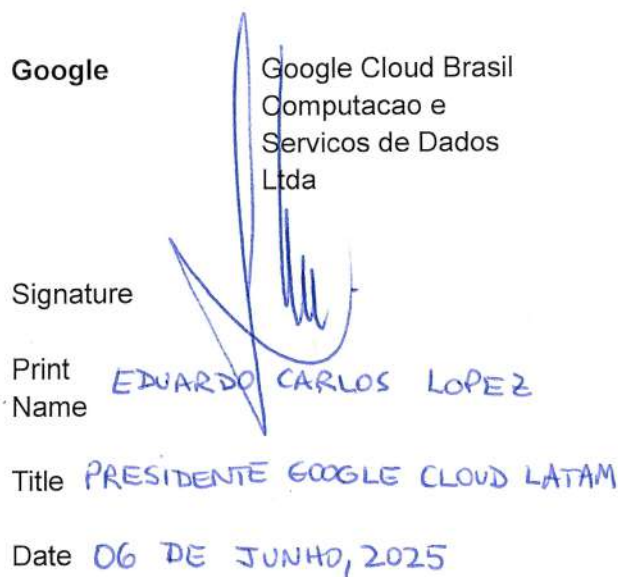 Google
Google Cloud Brasil
Computacao e
Servicos de Dados
Ltda
Signature
Print
Name
EDUARDO CARLOS LOPEZ
Title PRESIDENTE GOOGLE CLOUD LATAM
Date 06 DE JUNHO, 2025